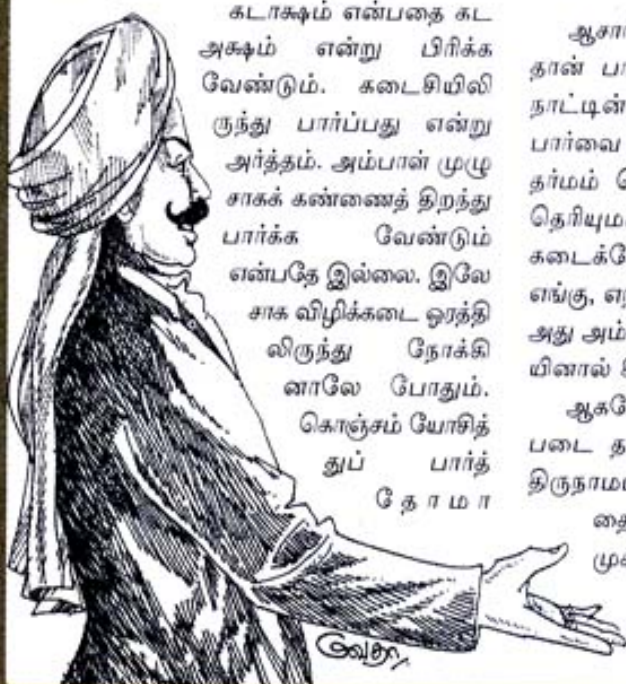 கடாக்ஷம் என்பதை கட
அக்ஷம் என்று பிரிக்க
வேண்டும். கடைசியிலி
ருந்து பார்ப்பது என்று
அர்த்தம். அம்பாள் முழு
சாகக் கண்ணைத் திறந்து
பார்க்க வேண்டும்
என்பதே இல்லை. இலே
சாக விழிக்கடை ஓரத்தி
லிருந்து நோக்கி
னாலே போதும்.
கொஞ்சம் யோசித்
துப் பார்த்
தோமா
தான்
நாட்டின்
பார்வை
தர்மம்
எங்கு,
படை
வேதா